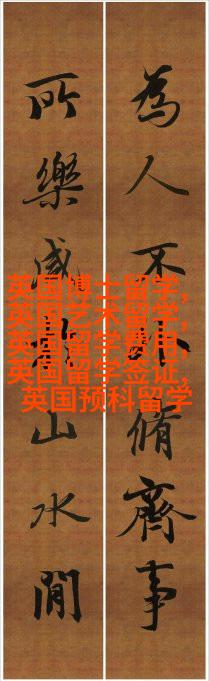 為人不脩齊事
所樂咸山水間
英国博士留学,
英国艺术留学,
英国留学费用,
英国留学签证,
英国预科留学